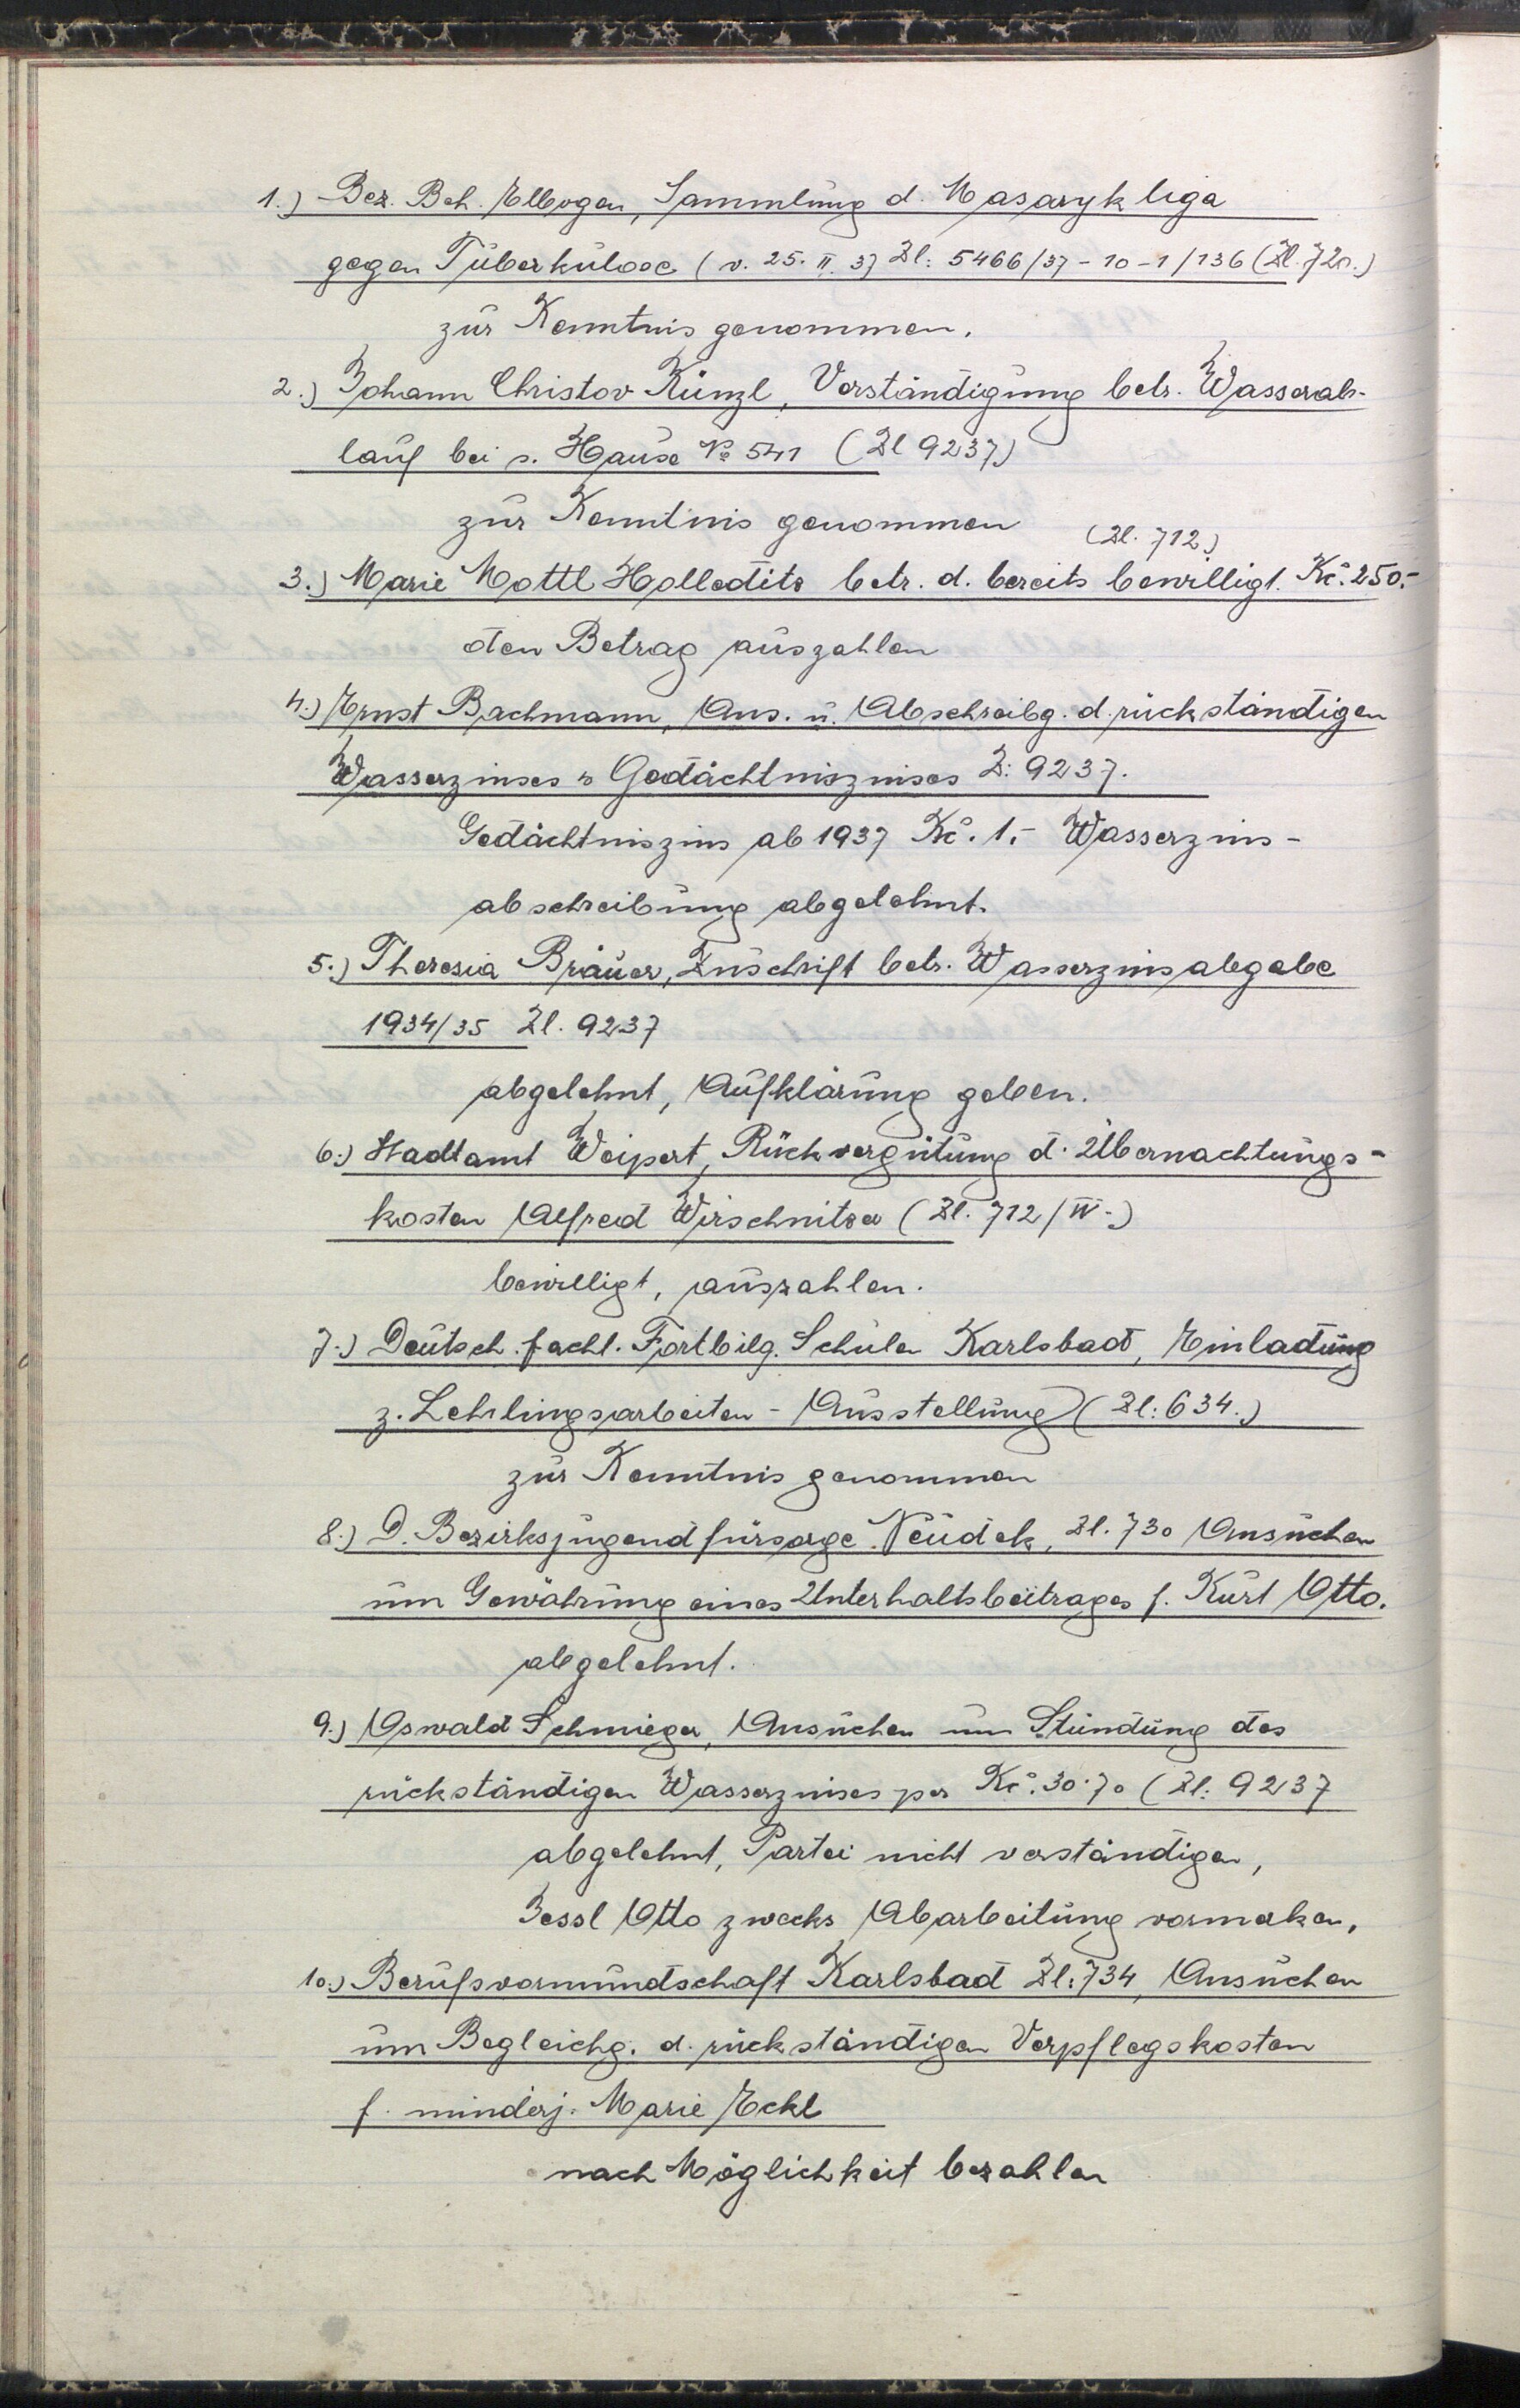 1.) Bez. Beh. Elbogen, Sammlung d. Masaryk liga
gegen Tuberkulose (v. 25. II. 37 Zl: 5466/37-10-1/136 (Zl. 720.)
zur Kenntnis genommen.
2.) Johann Christov Künzl, Verständigung betr. Wasserab-
lauf bei s. Hause No 541 (Zl 9237)
zur Kenntnis genommen
(Zl. 712.)
3.) Marie Mottl Holleditz betr. d. bereits bewilligt. Kč. 250.-
den Betrag auszahlen
4.) Ernst Bachmann, Ans. u. Abschreibg. d. rückständigen
Wasserzinses u Gedächtniszinses Z: 9237.
Gedächtniszins ab 1937 Kč. 1.- Wasserzins-
abschreibung abgelehnt.
5.) Theresia Bräuer, Zuschrift betr. Wasserzinsabgabe
1934/35 Zl. 9237
abgelehnt, Aufklärung geben.
6.) Stadtamt Weipert, Rückvergütung d. Übernachtungs-
kosten Alfred Wirschnitzer (Zl. 712/IV.)
bewilligt, auszahlen.
7.) Deutsch. fachl. Fortbilg. Schulen Karlsbad, Einladung
z. Lehrlingsarbeiten-Ausstellung (Zl: 634.)
zur Kenntnis genommen
8.) D. Bezirksjugendfürsorge Neudek, Zl. 730 Ansuchen
um Gewährung eines Unterhaltsbeitrages f. Kurt Otto.
abgelehnt.
9.) Oswald Schmieger, Ansuchen um Stundung des
rückständigen Wasserzinses per Kč. 30.70 (Zl: 9237
abgelehnt, Partei nicht verständigen,
Jessl Otto zwecks Abarbeitung vormerken.
10.) Berufsvormundschaft Karlsbad Zl: 734, Ansuchen
um Begleichg. d. rückständigen Verpflegskosten
f. minderj. Marie Eckl
nach Möglichkeit bezahlen